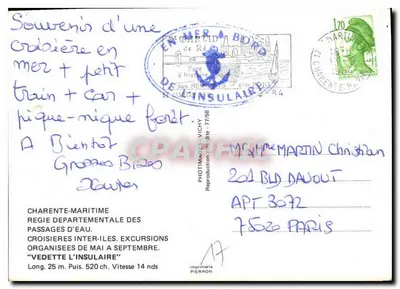 Souvenir d'une
croisière en
mer + petit
train + car +
pique-nique forêt.
A Bientot
Grosses Bises
EN MER A BORD
DE L'INSULAIRE
1,70
CHARENTE
84
PHOTIMAGE VICHY
Reproduction 77/58
M&Me MARTIN Christian
201 BLD DAVOUT
APT 3072
75020 PARIS
CHARENTE-MARITIME
REGIE DEPARTEMENTALE DES
PASSAGES D'EAU.
CROISIERES INTER-ILES. EXCURSIONS
ORGANISEES DE MAI A SEPTEMBRE.
"VEDETTE L'INSULAIRE"
Long. 25 m. Puis. 520 ch. Vitesse 14 nds
17
Imprimerie
PIERRON